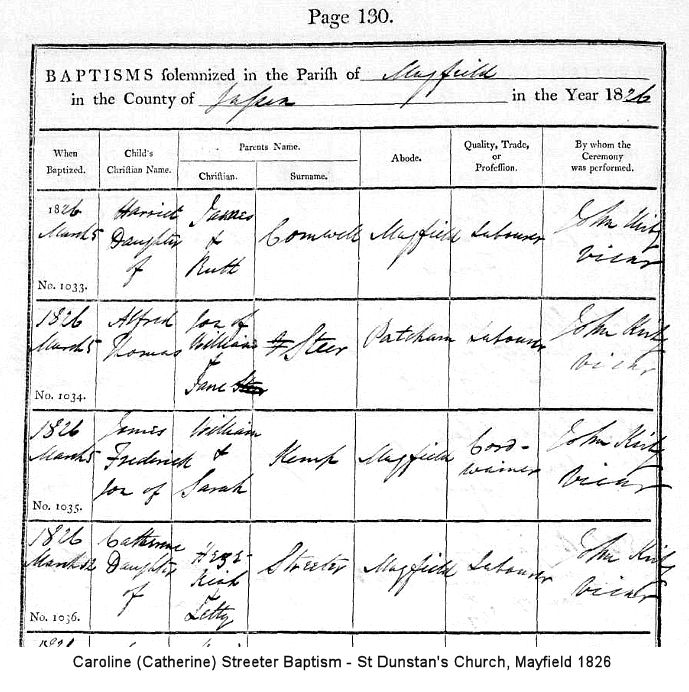 Page 130.
BAPTISMS solemnized in the Parish of Mayfield
in the County of Sussex in the Year 1826
When Baptized. Child's Christian Name. Parents Name. Christian. Surname. Abode. Quality, Trade, or Profession. By whom the Ceremony was performed.
1826 March 5 No. 1033. Harriet Daughter of James & Ruth Cornwell Mayfield Labourer John Kirby Vicar
1826 March 5 No. 1034. Alfred Thomas Son of William & Jane Steer Patcham Labourer John Kirby Vicar
1826 March 5 No. 1035. James Frederick Son of William & Sarah Kemp Mayfield Cordwainer John Kirby Vicar
1826 March 12 No. 1036. Catherine Daughter of Hezekiah & Letty Streeter Mayfield Labourer John Kirby Vicar
Caroline (Catherine) Streeter Baptism - St Dunstan's Church, Mayfield 1826